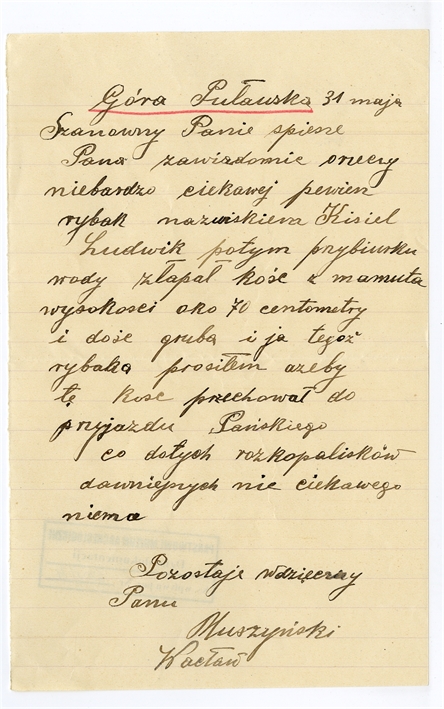 Góra Puławska 31 maja
Szanowny Panie spiesze
Pana zawizdomic orzeczy
niebardzo ciekawej pewien
rybak nazwiskiem Kisiel
Ludwik potym przybiurku
wody złapał kość z mamuta
wysokosci oko 70 centometry
i dośc gruba i ja tegoż
rybaka prosiłem azeby
tę kosc przechował do
przyjazdu Pańskiego
co dotych rozkopalisków
dawniejszych nic ciekawego
niema
Pozostaje wdzięczny
Panu
Muszyński
Wacław